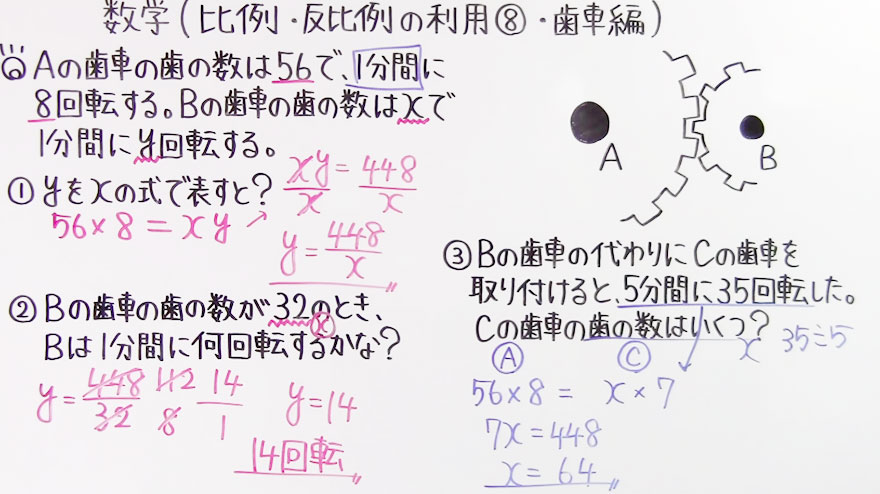 数学(比例・反比例の利用⑧・歯車編)
Q Aの歯車の歯の数は56で、1分間に
8回転する。Bの歯車の歯の数はxで
1分間にy回転する。
① yをxの式で表すと?
xy/x = 448/x
56×8 = xy
y = 448/x
② Bの歯車の歯の数が32のとき、
x
Bは1分間に何回転するかな?
y = 448/32 112/8 14/1 y=14
14回転
A
B
③ Bの歯車の代わりにCの歯車を
取り付けると、5分間に35回転した。
Cの歯車の歯の数はいくつ?
x 35÷5
Ⓐ Ⓒ
56×8 = x×7
7x=448
x=64